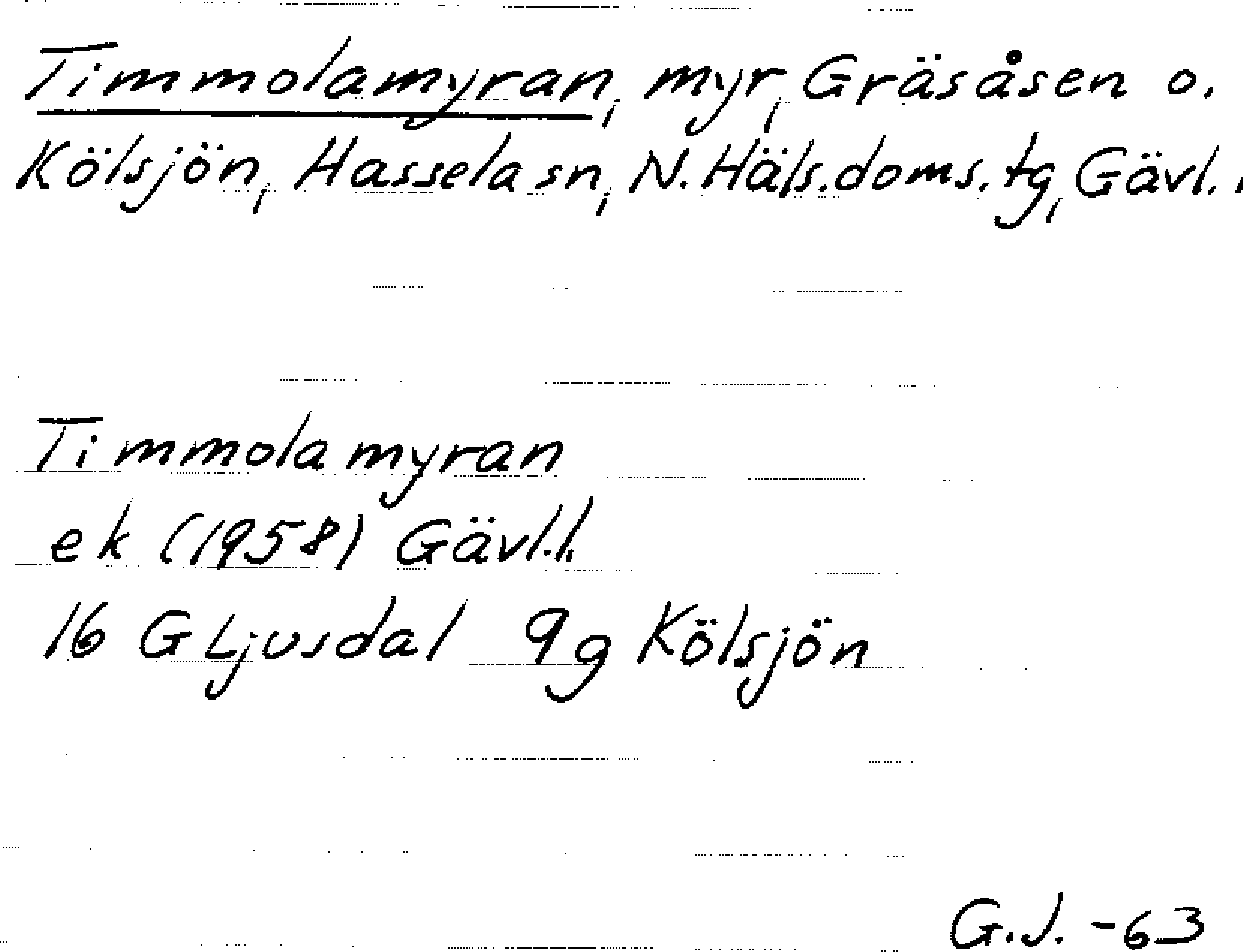 Timmolamyran, myr, Gräsåsen o.
Kölsjön, Hassela sn, N. Häls. doms. tg, Gävl.
Timmolamyran
ek (1958) Gävl.l.
16 G Ljusdal 9g Kölsjön
G.J. -63